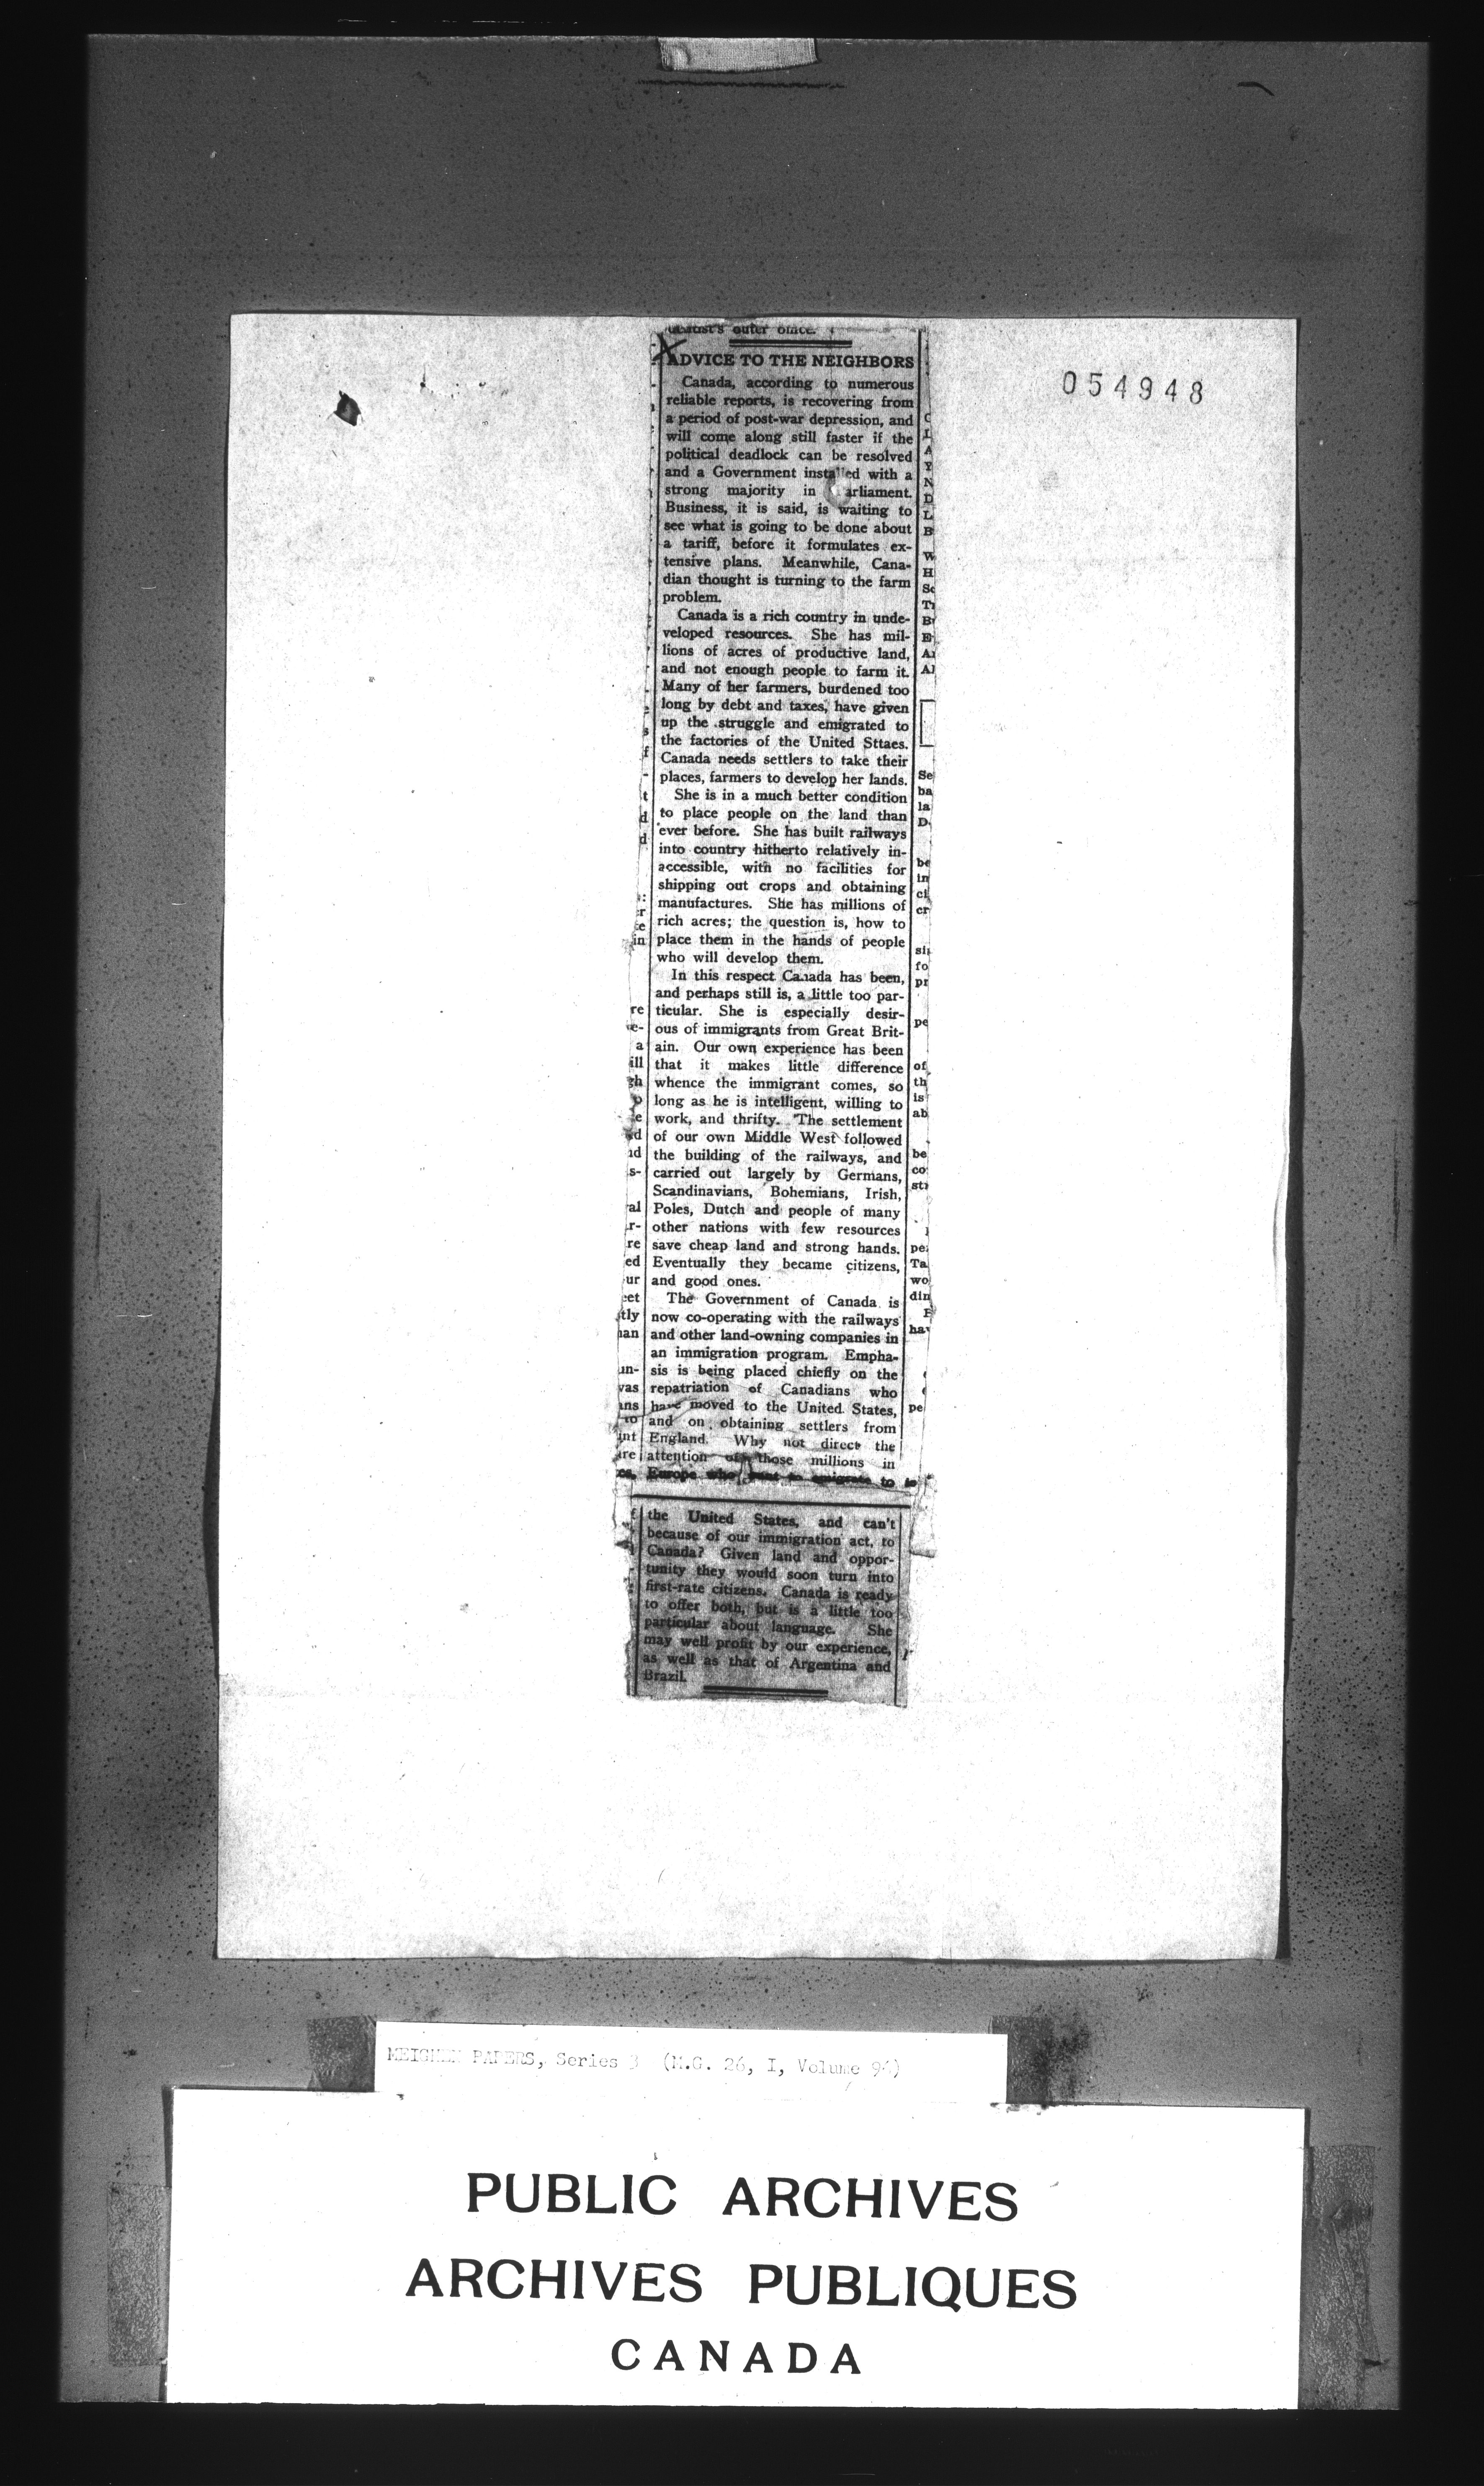 outer office.
ADVICE TO THE NEIGHBORS
054948
Canada, according to numerous
reliable reports, is recovering from
a period of post-war depression, and
will come along still faster if the
political deadlock can be resolved
and a Government installed with a
strong majority in Parliament.
Business, it is said, is waiting to
see what is going to be done about
a tariff, before it formulates ex-
tensive plans. Meanwhile, Cana-
dian thought is turning to the farm
problem.
Canada is a rich country in unde-
veloped resources. She has mil-
lions of acres of productive land,
and not enough people to farm it.
Many of her farmers, burdened too
long by debt and taxes, have given
up the struggle and emigrated to
the factories of the United Sttaes.
Canada needs settlers to take their
places, farmers to develop her lands.
She is in a much better condition
to place people on the land than
ever before. She has built railways
into country hitherto relatively in-
accessible, with no facilities for
shipping out crops and obtaining
manufactures. She has millions of
rich acres; the question is, how to
place them in the hands of people
who will develop them.
In this respect Canada has been,
and perhaps still is, a little too par-
ticular. She is especially desir-
ous of immigrants from Great Brit-
ain. Our own experience has been
that it makes little difference
whence the immigrant comes, so
long as he is intelligent, willing to
work, and thrifty. The settlement
of our own Middle West followed
the building of the railways, and
carried out largely by Germans,
Scandinavians, Bohemians, Irish,
Poles, Dutch and people of many
other nations with few resources
save cheap land and strong hands.
Eventually they became citizens,
and good ones.
The Government of Canada is
now co-operating with the railways
and other land-owning companies in
an immigration program. Empha-
sis is being placed chiefly on the
repatriation of Canadians who
have moved to the United States,
and on obtaining settlers from
England. Why not direct the
attention of those millions in
Europe who want to emigrate to
the United States, and can't
because of our immigration act, to
Canada? Given land and oppor-
tunity they would soon turn into
first-rate citizens. Canada is ready
to offer both, but is a little too
particular about language. She
may well profit by our experience,
as well as that of Argentina and
Brazil.
MEIGHEN PAPERS, Series 3 (M.G. 26, I, Volume
PUBLIC ARCHIVES
ARCHIVES PUBLIQUES
CANADA